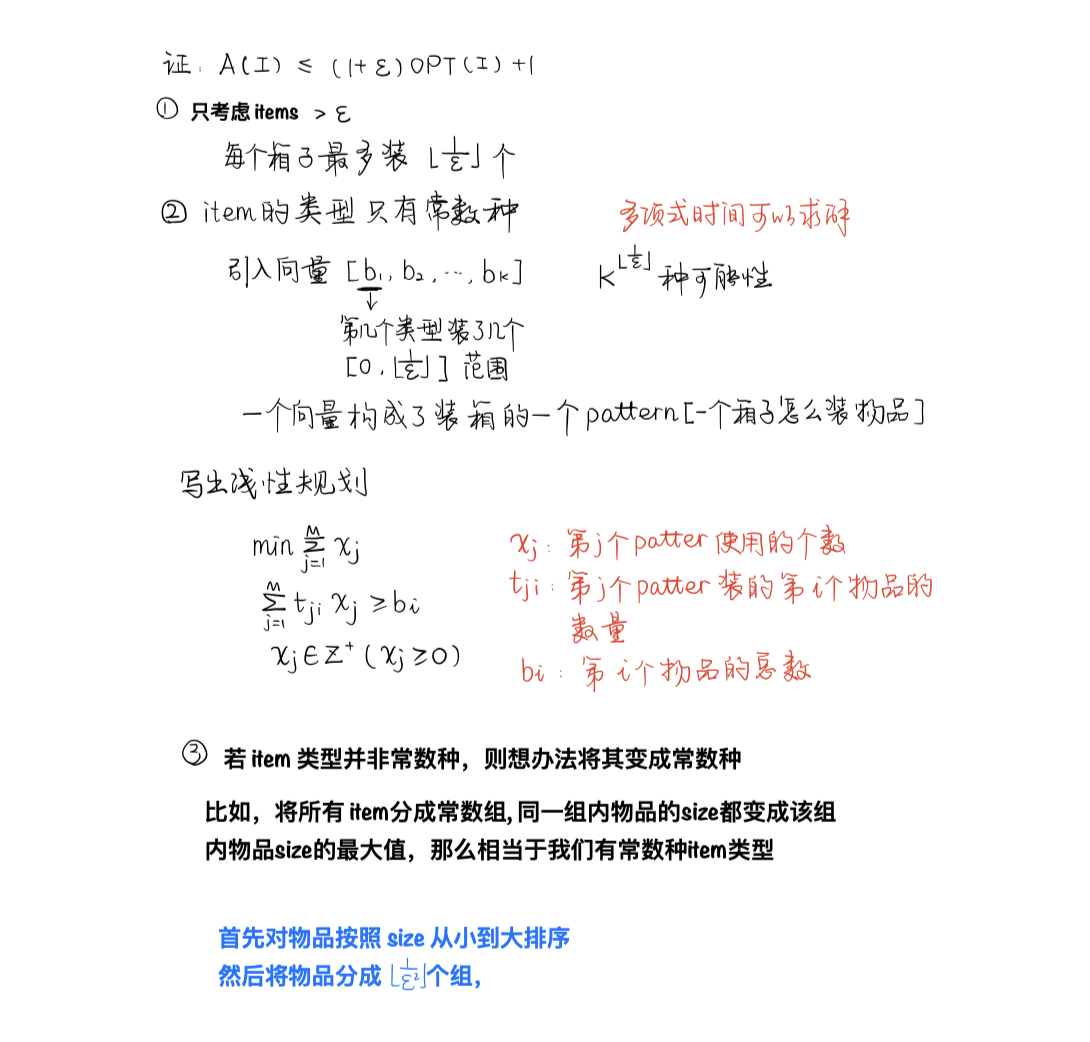 证: A(I) ≤ (1+ε)OPT(I)+1
① 只考虑 items > ε
每个箱子最多装 ⌊1/ε⌋ 个
② item的类型只有常数种
多项式时间可以求解
引入向量 [b₁, b₂, ..., bₖ]
K^⌊1/ε⌋ 种可能性
↓
第几个类型装了几个
[0, ⌊1/ε⌋] 范围
一个向量构成了装箱的一个pattern[一个箱子怎么装物品]
写出线性规划
min ∑_{j=1}^{M} xⱼ
xⱼ: 第j个patter使用的个数
∑_{j=1}^{M} tⱼᵢ xⱼ ≥ bᵢ
tⱼᵢ: 第j个patter装的第i个物品的
数量
xⱼ ∈ Z⁺ (xⱼ ≥ 0)
bᵢ: 第i个物品的总数
③ 若 item 类型并非常数种，则想办法将其变成常数种
比如，将所有 item分成常数组, 同一组内物品的size都变成该组
内物品size的最大值，那么相当于我们有常数种item类型
首先对物品按照 size 从小到大排序
然后将物品分成 ⌊1/ε²⌋个组，